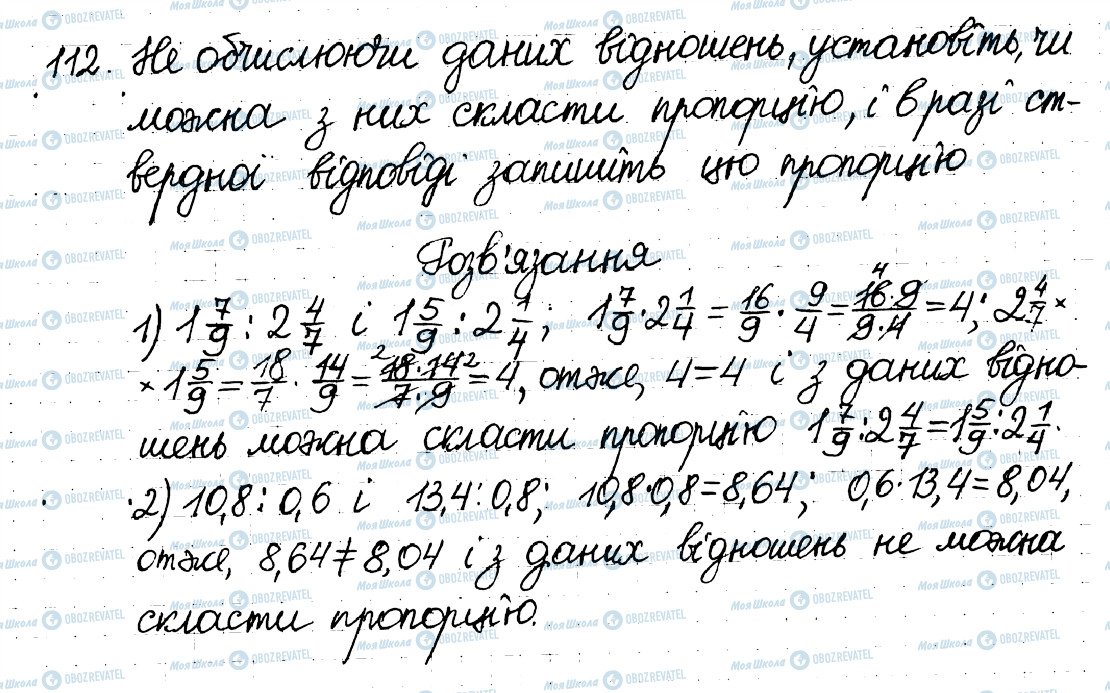 112. Не обчислюючи даних відношень, установіть, чи
можна з них скласти пропорцію, і в разі ст-
вердної відповіді запишіть цю пропорцію
Розв'язання
1) 1 7/9 : 2 4/7 і 1 5/9 : 2 1/4; 1 7/9 · 2 1/4 = 16/9 · 9/4 = 16·9/9·4 = 4; 2 4/7 ×
× 1 5/9 = 18/7 · 14/9 = 18·14/7·9 = 4, отже, 4 = 4 і з даних відно-
шень можна скласти пропорцію 1 7/9 : 2 4/7 = 1 5/9 : 2 1/4.
2) 10,8 : 0,6 і 13,4 : 0,8; 10,8·0,8 = 8,64; 0,6·13,4 = 8,04,
отже, 8,64 ≠ 8,04 і з даних відношень не можна
скласти пропорцію.